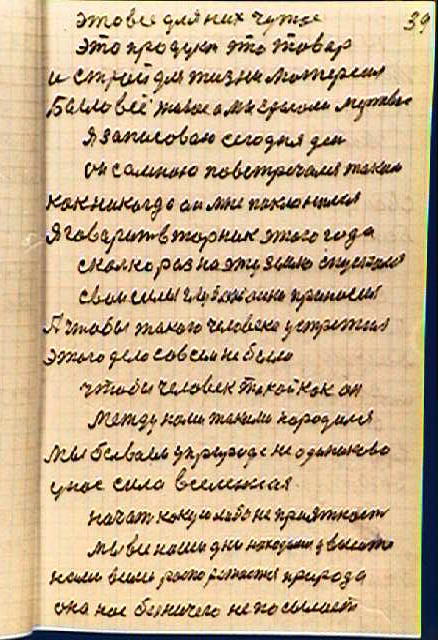 39
это все для них чужое
это продукт это товар
и строй для жизни материал
Было всё живое а мы зделали мертвое
Я записоваю сегодня ден
он самною повстречался таким
как никогда он мне поклонился
Я говорит вторник этого года
сколко раз на эту землю спускался
свои силы приносил
А чтобы такого человека устретил
этого дело совсем не было
чтобы человек такой как он
между нами такими народился
Мы бываем у природе не одинаково
унас сила вселенская
начат какую либо не приятност
мы все наши дни находимся
нами природа
она нас безничего не посылает